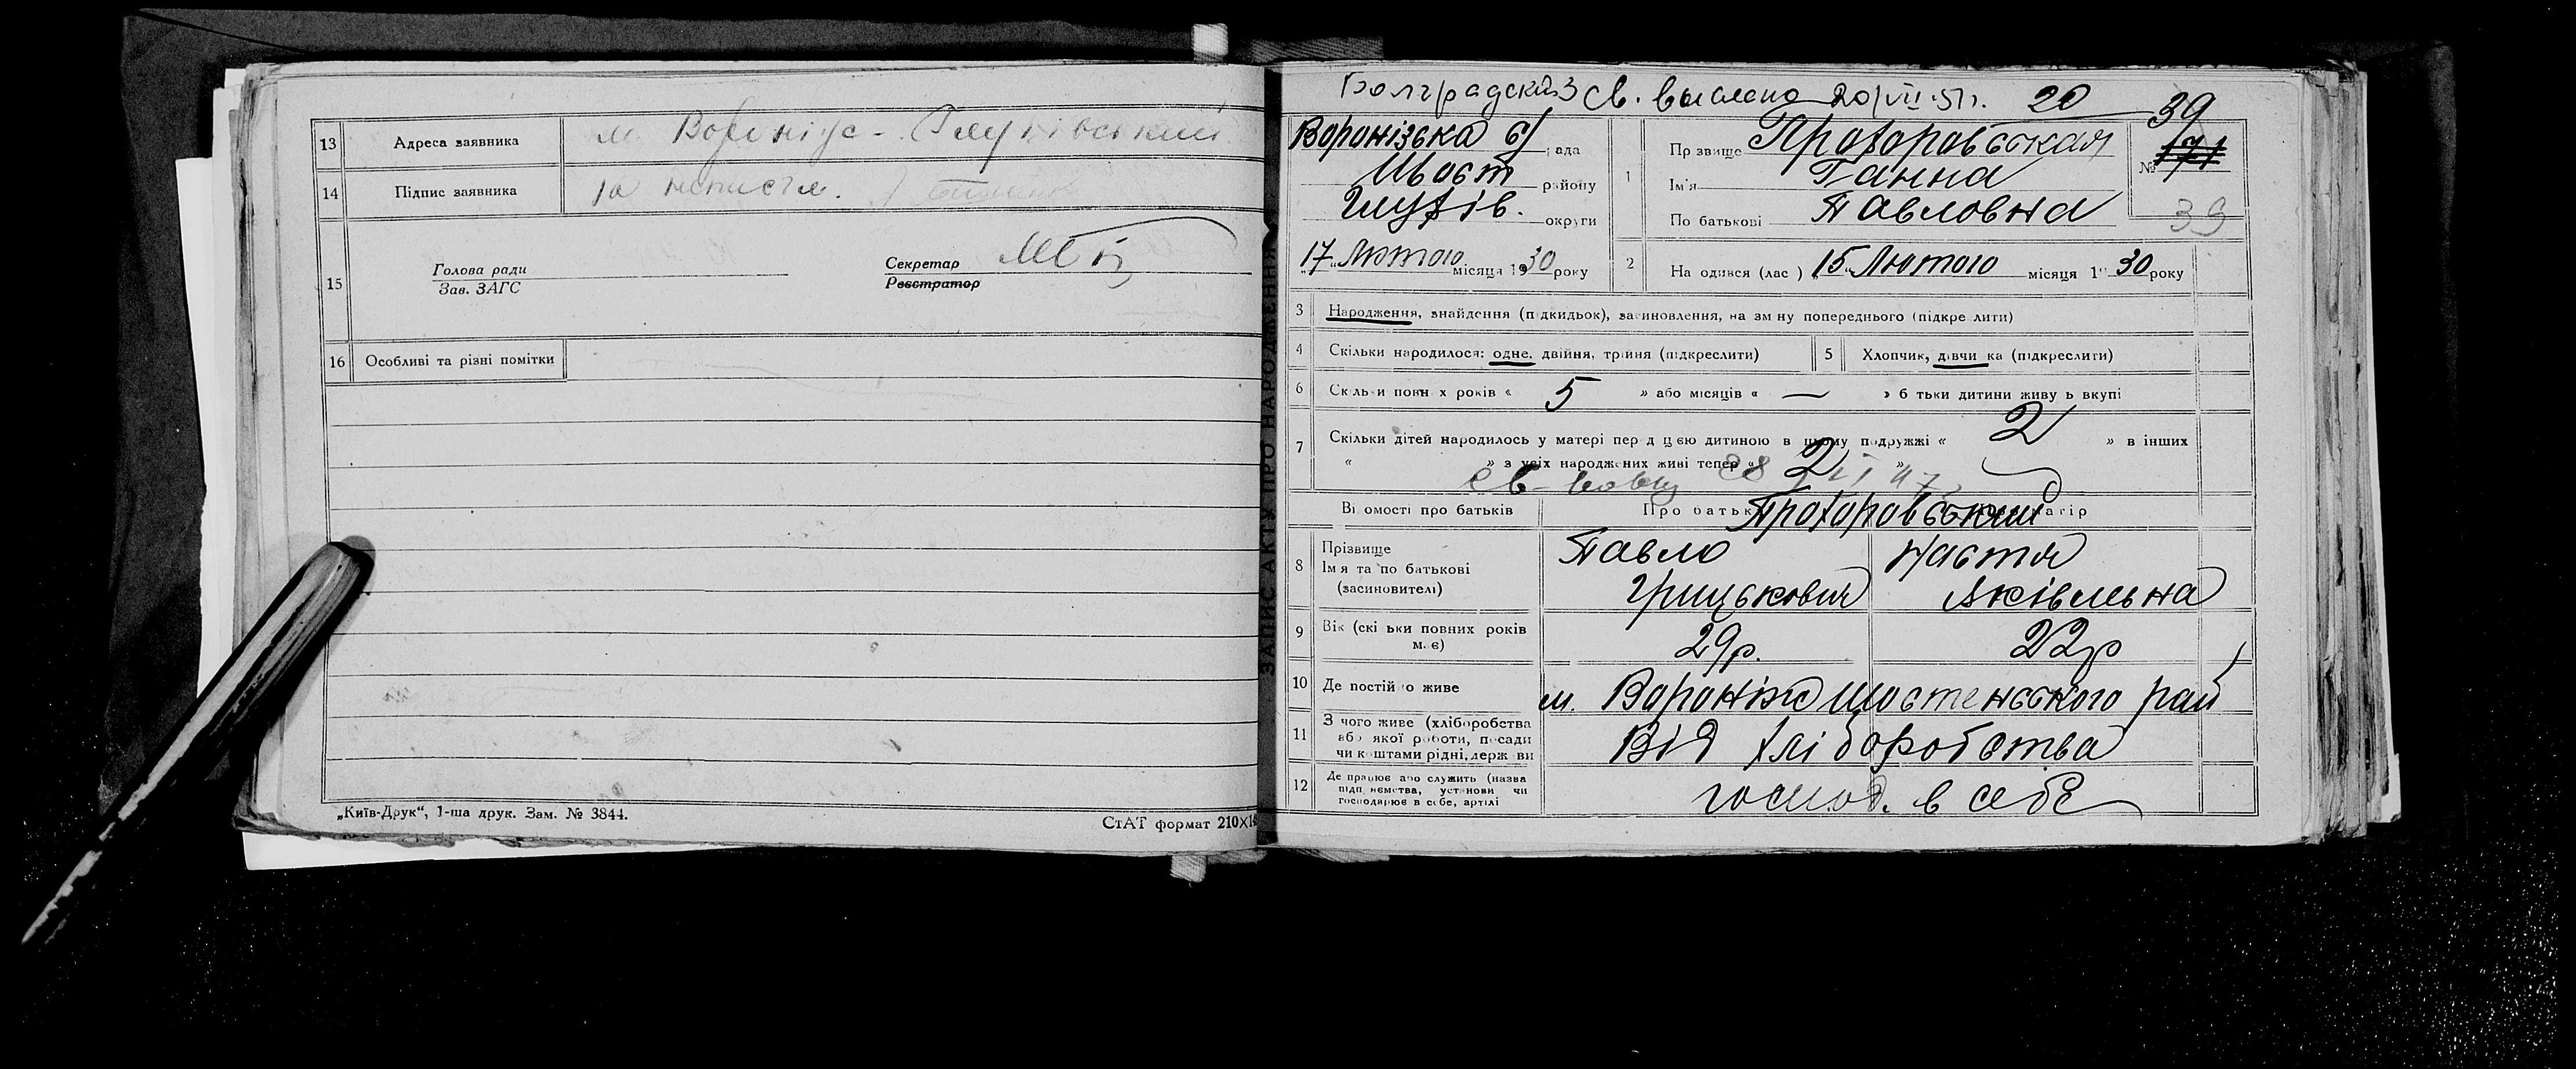 13 Адреса заявника м.
14 Підпис заявника
15 Голова ради
Зав. ЗАГС
Секретар
Реєстратор
16 Особливі та різні помітки
„Київ-Друк“, 1-ша друк. Зам. № 3844.
СтАТ формат 210×1
ЗАПИС АКТУ ПРО НАРОДЖЕННЯ
Св. выслано 20/VII 51 г. 20
39
Воронізька с/рада
Шост району
Глухів. округи
17 Лютого місяця 1930 року
1 Прізвище Прохоровськая
Ім'я Ганна
По батькові Павловна
№ 171
39
2 Народився (лась) 15 Лютого місяця 1930 року
3 Народження, знайдення (підкидьок), засиновлення, на зміну попереднього (підкреслити)
4 Скільки народилося: одне, двійня, трійня (підкреслити)
5 Хлопчик, дівчинка (підкреслити)
6 Скільки повних років « 5 » або місяців « — » батьки дитини живуть вкупі
7 Скільки дітей народилось у матері перед цією дитиною в цьому подружжі « 2 » в інших
« » з усіх народжених живі тепер « 2 »
Відомості про батьків
Про батька
Прохоровський
8 Прізвище
Ім'я та по батькові
(засиновителі)
Павло
Грицькович
Настя
Яківльна
9 Вік (скільки повних років має)
29р.
22р
10 Де постійно живе м. Вороніж Шостенського рай
11 З чого живе (хліборобства
або якої роботи, посади
чи коштами рідні, держави
Від хліборобства
12 Де працює або служить (назва
підприємства, установи чи
господарює в себе, артілі
господ. в себе